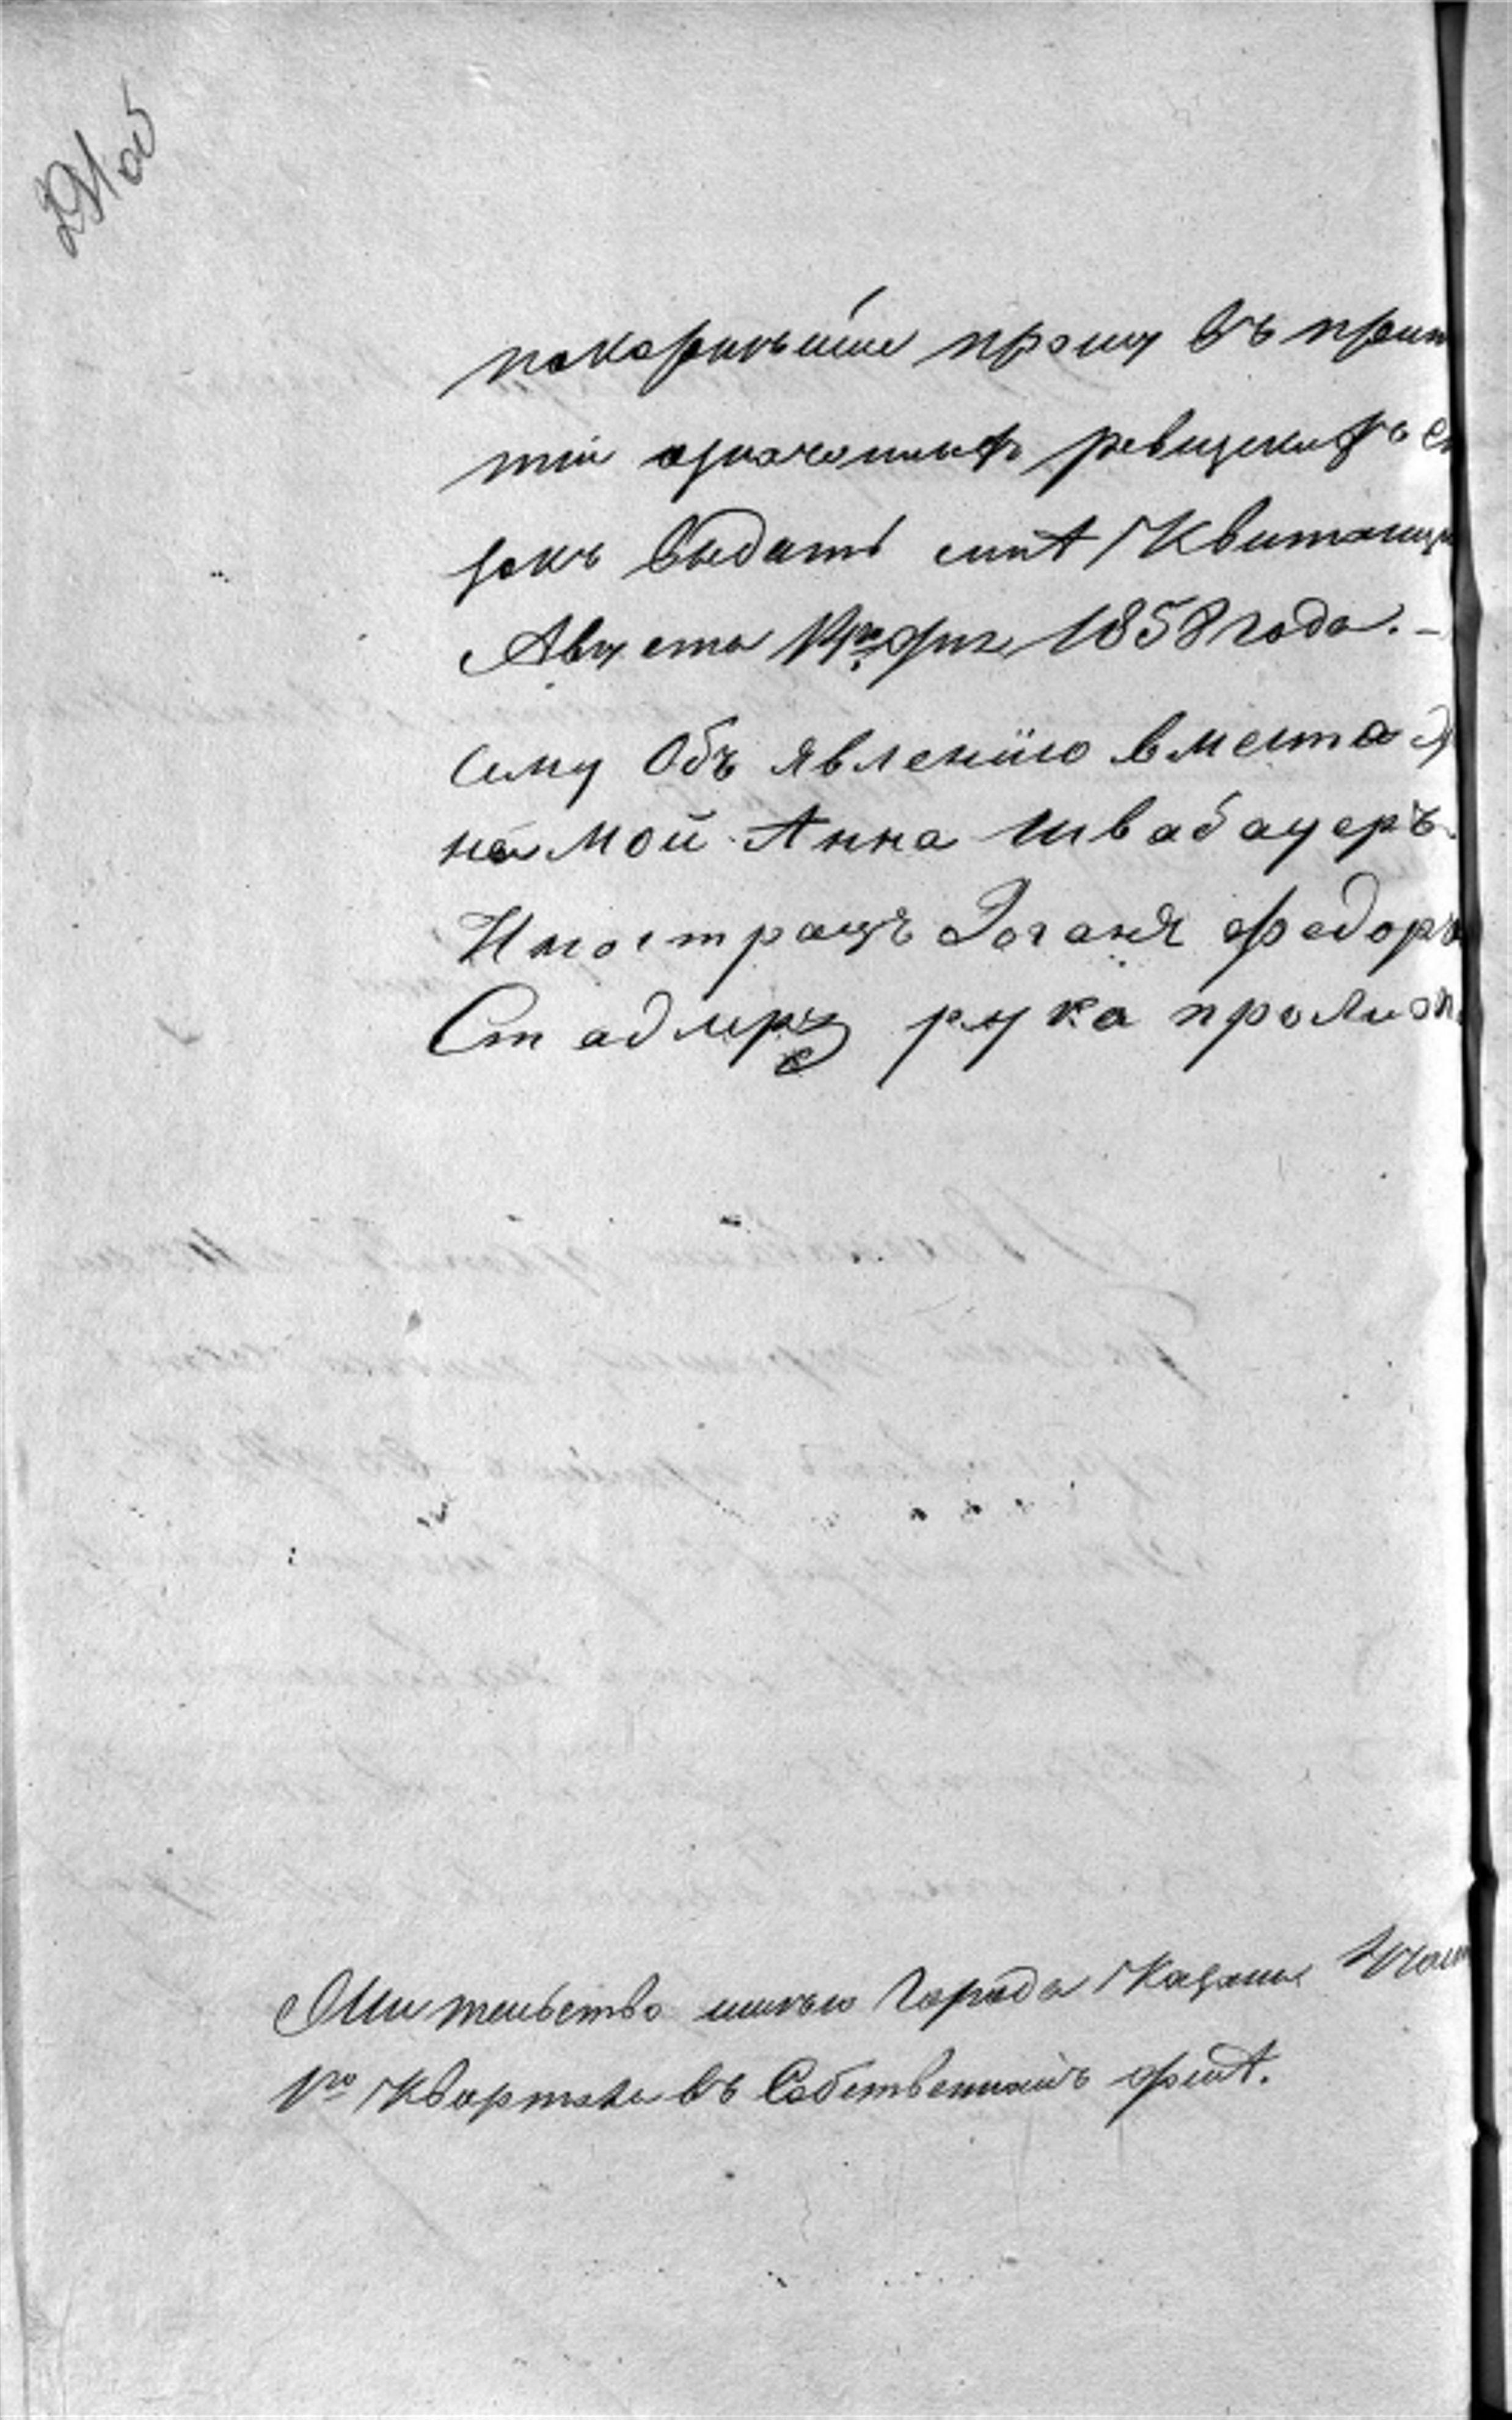 291 об
покорнейше прошу въ приня
тіи означенныхъ ревизскихъ с
зокъ выдать мнѣ Квитанци
Августа 14го дня 1858 года. -
сему Объ явленiю вместо
ня мой Анна Швабауеръ
Иностранцъ Иоганя Федоръ
Стадлеръ рука прилож
Жительство имею Города Казани Части
1го Квартала въ Собственномъ домѣ.